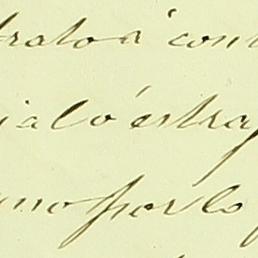 trato á con
ial ó estra
no por lo